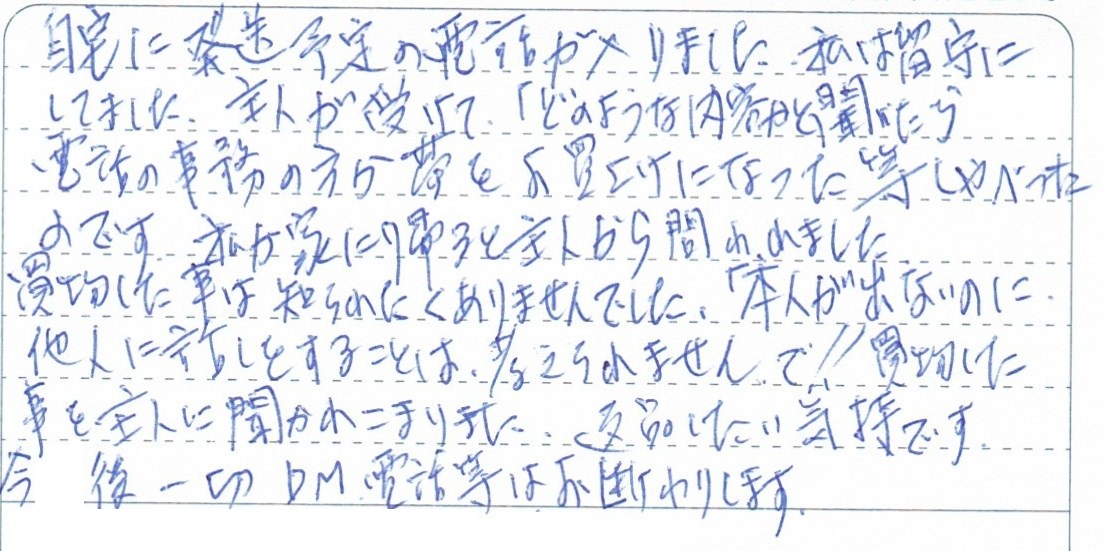 自宅に発送予定の電話が入りました。私は留守に
してました。主人が受けて、「どのような内容かと聞いたら
電話の事務の方が 帯をお買上げになった等しゃべった
のです。私が家に帰ると主人から問われました。
買物した事は知られたくありませんでした。「本人が出ないのに
他人に話しをすることは、考えられませんで!!買物した
事を主人に聞かれこまりました。返品したい気持です。
今後一切DM、電話等はお断わりします。